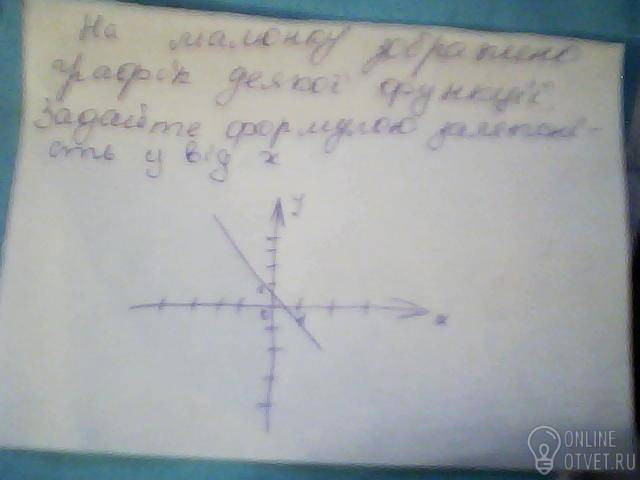 На малюнку зображено
графік деякої функції.
Задайте формулою залежні-
сть у від х
y
x
0
ONLINE
OTVET.RU